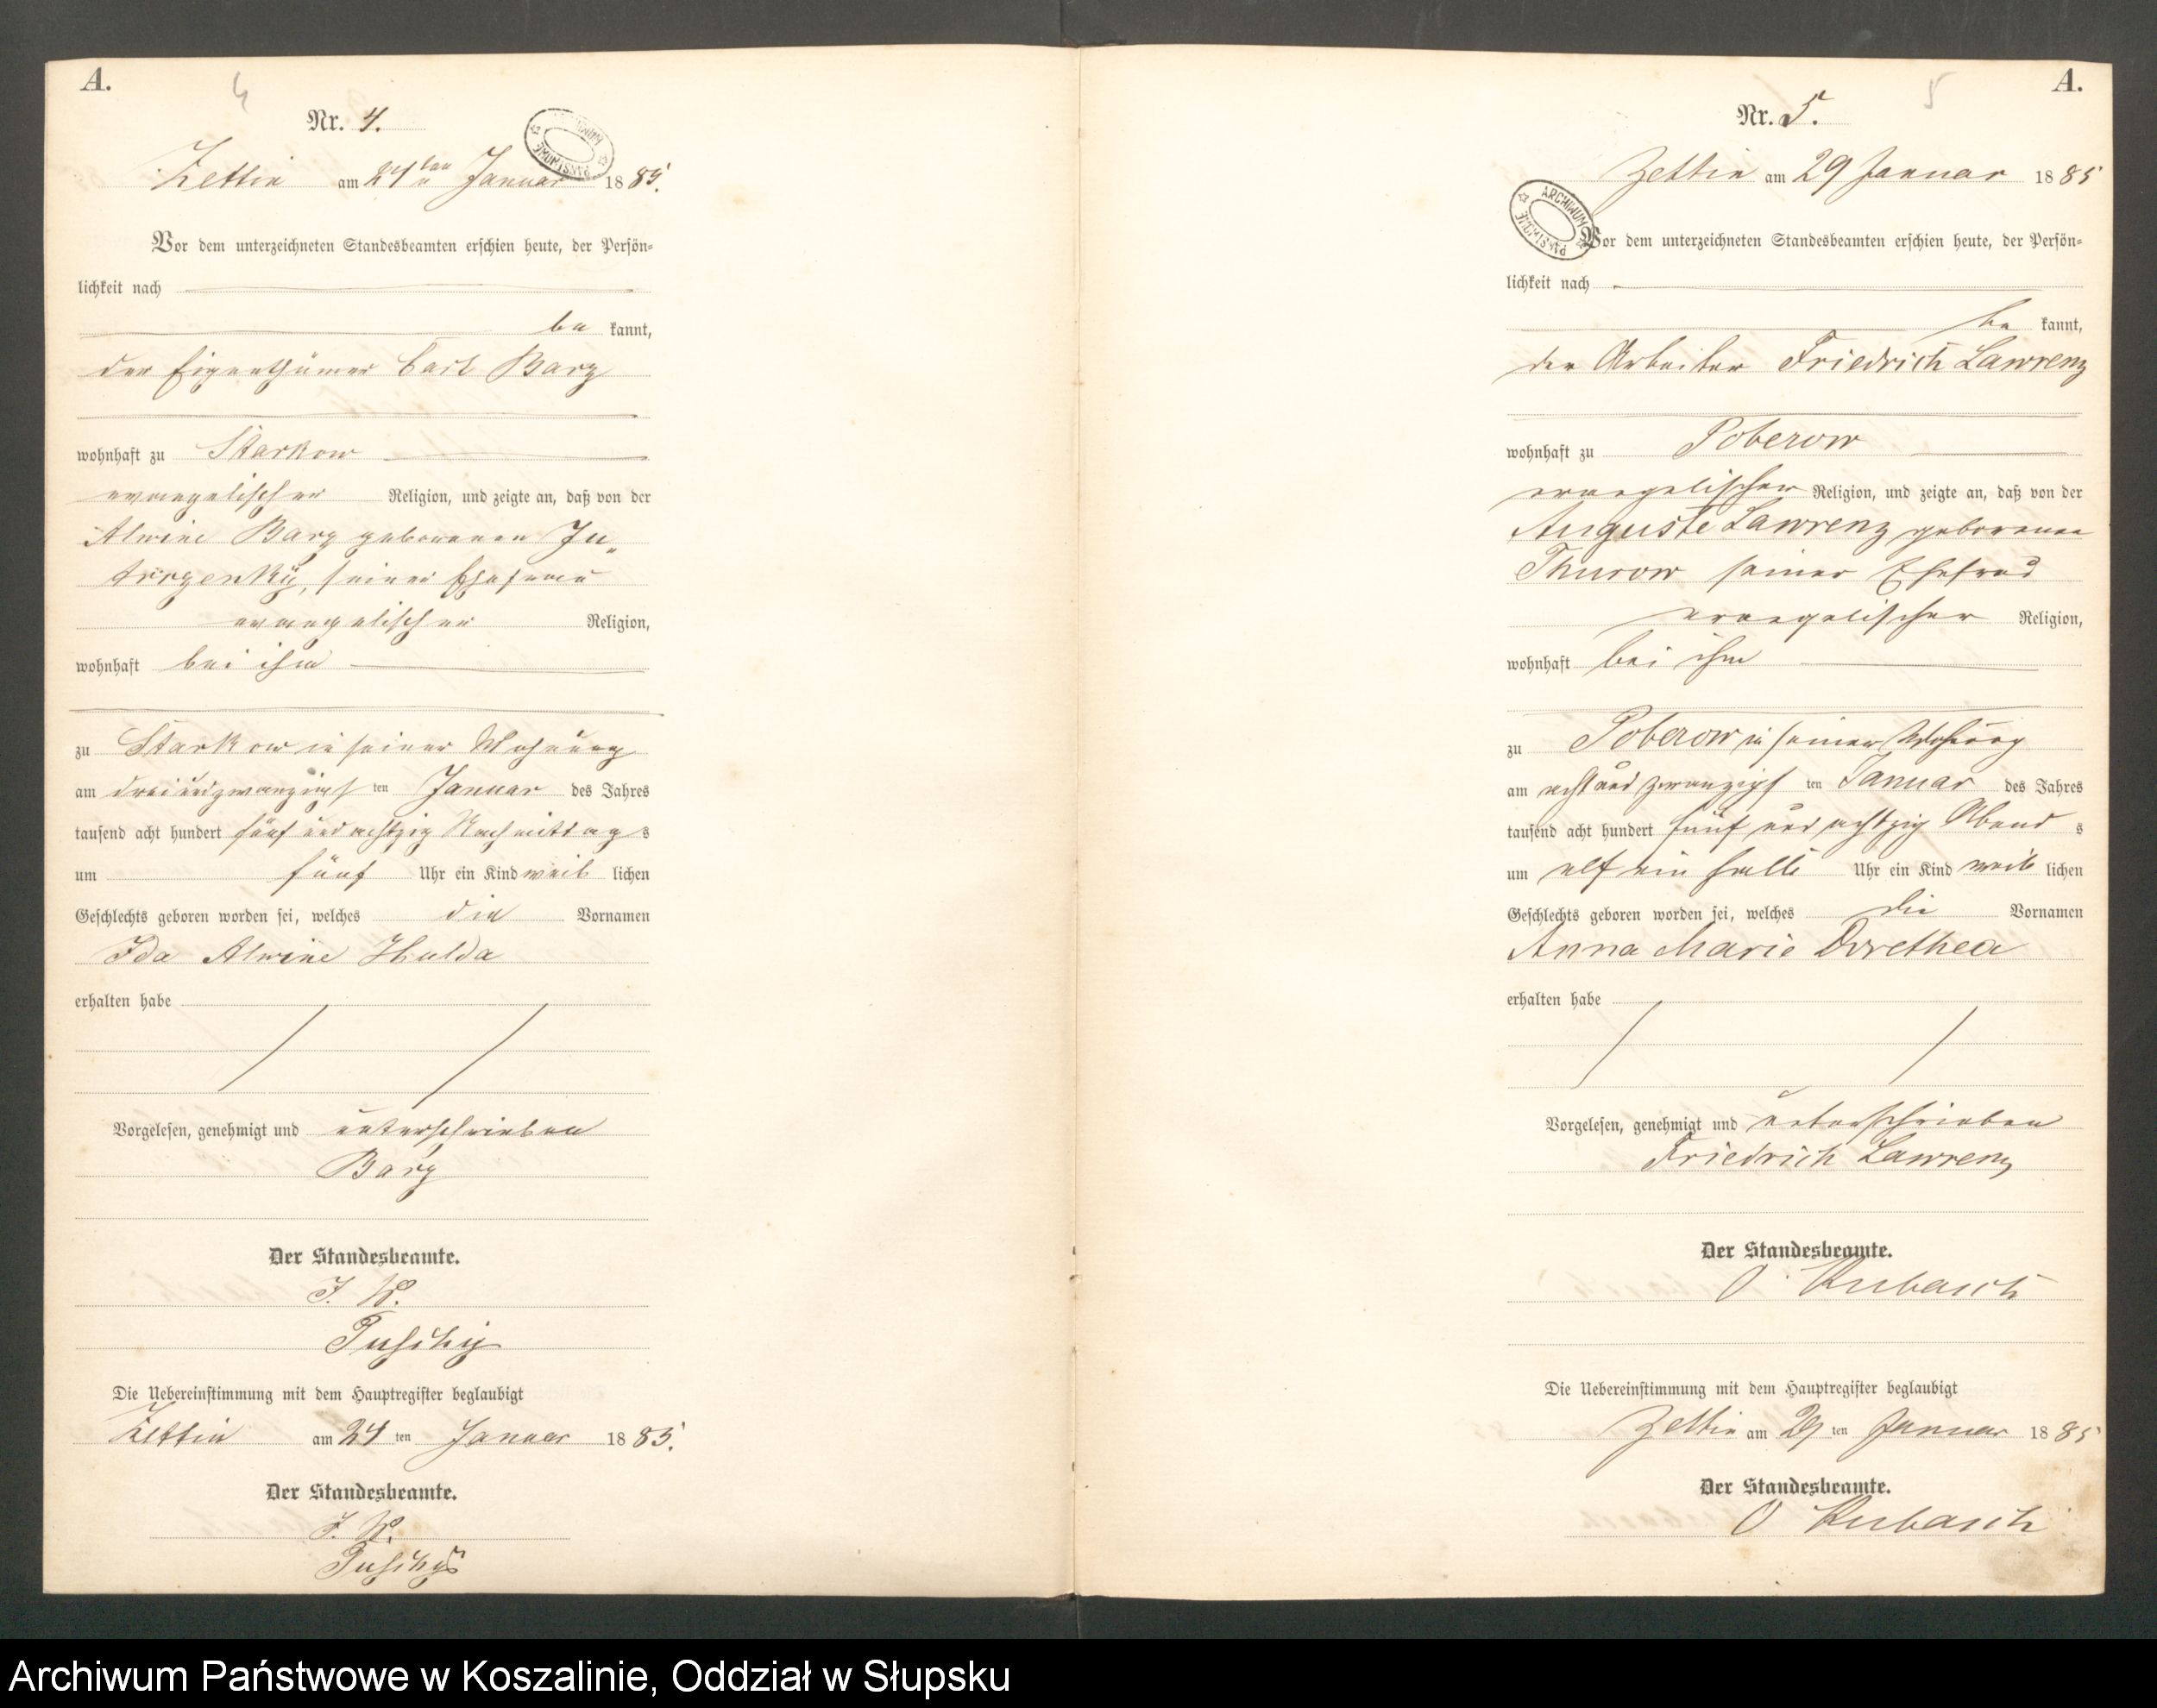 A.
4
Nr. 4.
ARCHIWUM PAŃSTWOWE
Zettin am 24ten Januar 1885.
Vor dem unterzeichneten Standesbeamten erschien heute, der Persön-
lichkeit nach
be kannt,
der Eigenthümer Carl Barz
wohnhaft zu Starkow
evangelischer Religion, und zeigte an, daß von der
Alwine Barz geborenen
seiner Ehefrau
evangelischer Religion,
wohnhaft bei ihm
zu Starkow in seiner Wohnung
am dreiundzwanzigs ten Januar des Jahres
tausend acht hundert fünf und achtzig Nachmittag s
um fünf Uhr ein Kind weib lichen
Geschlechts geboren worden sei, welches die Vornamen
Ida Alwine Hulda
erhalten habe
Vorgelesen, genehmigt und unterschrieben
Barz
Der Standesbeamte.
J. V.
Die Uebereinstimmung mit dem Hauptregister beglaubigt
Zettin am 24 ten Januar 1885.
Der Standesbeamte.
J. V.
A.
5
Nr. 5.
Zettin am 29 Januar 1885
ARCHIWUM PAŃSTWOWE
Vor dem unterzeichneten Standesbeamten erschien heute, der Persön-
lichkeit nach
be kannt,
der Arbeiter Friedrich Lawrenz
wohnhaft zu Poberow
evangelischer Religion, und zeigte an, daß von der
Auguste Lawrenz geborenen
Thurow seiner Ehefrau
evangelischer Religion,
wohnhaft bei ihm
zu Poberow in seiner Wohnung
am acht und zwanzigs ten Januar des Jahres
tausend acht hundert fünf und achtzig Abend s
um elf ein halb Uhr ein Kind weib lichen
Geschlechts geboren worden sei, welches die Vornamen
Anna Marie Dorethea
erhalten habe
Vorgelesen, genehmigt und unterschrieben
Friedrich Lawrenz
Der Standesbeamte.
O Kubasch
Die Uebereinstimmung mit dem Hauptregister beglaubigt
Zettin am 29 ten Januar 1885
Der Standesbeamte.
O Kubasch
Archiwum Państwowe w Koszalinie, Oddział w Słupsku